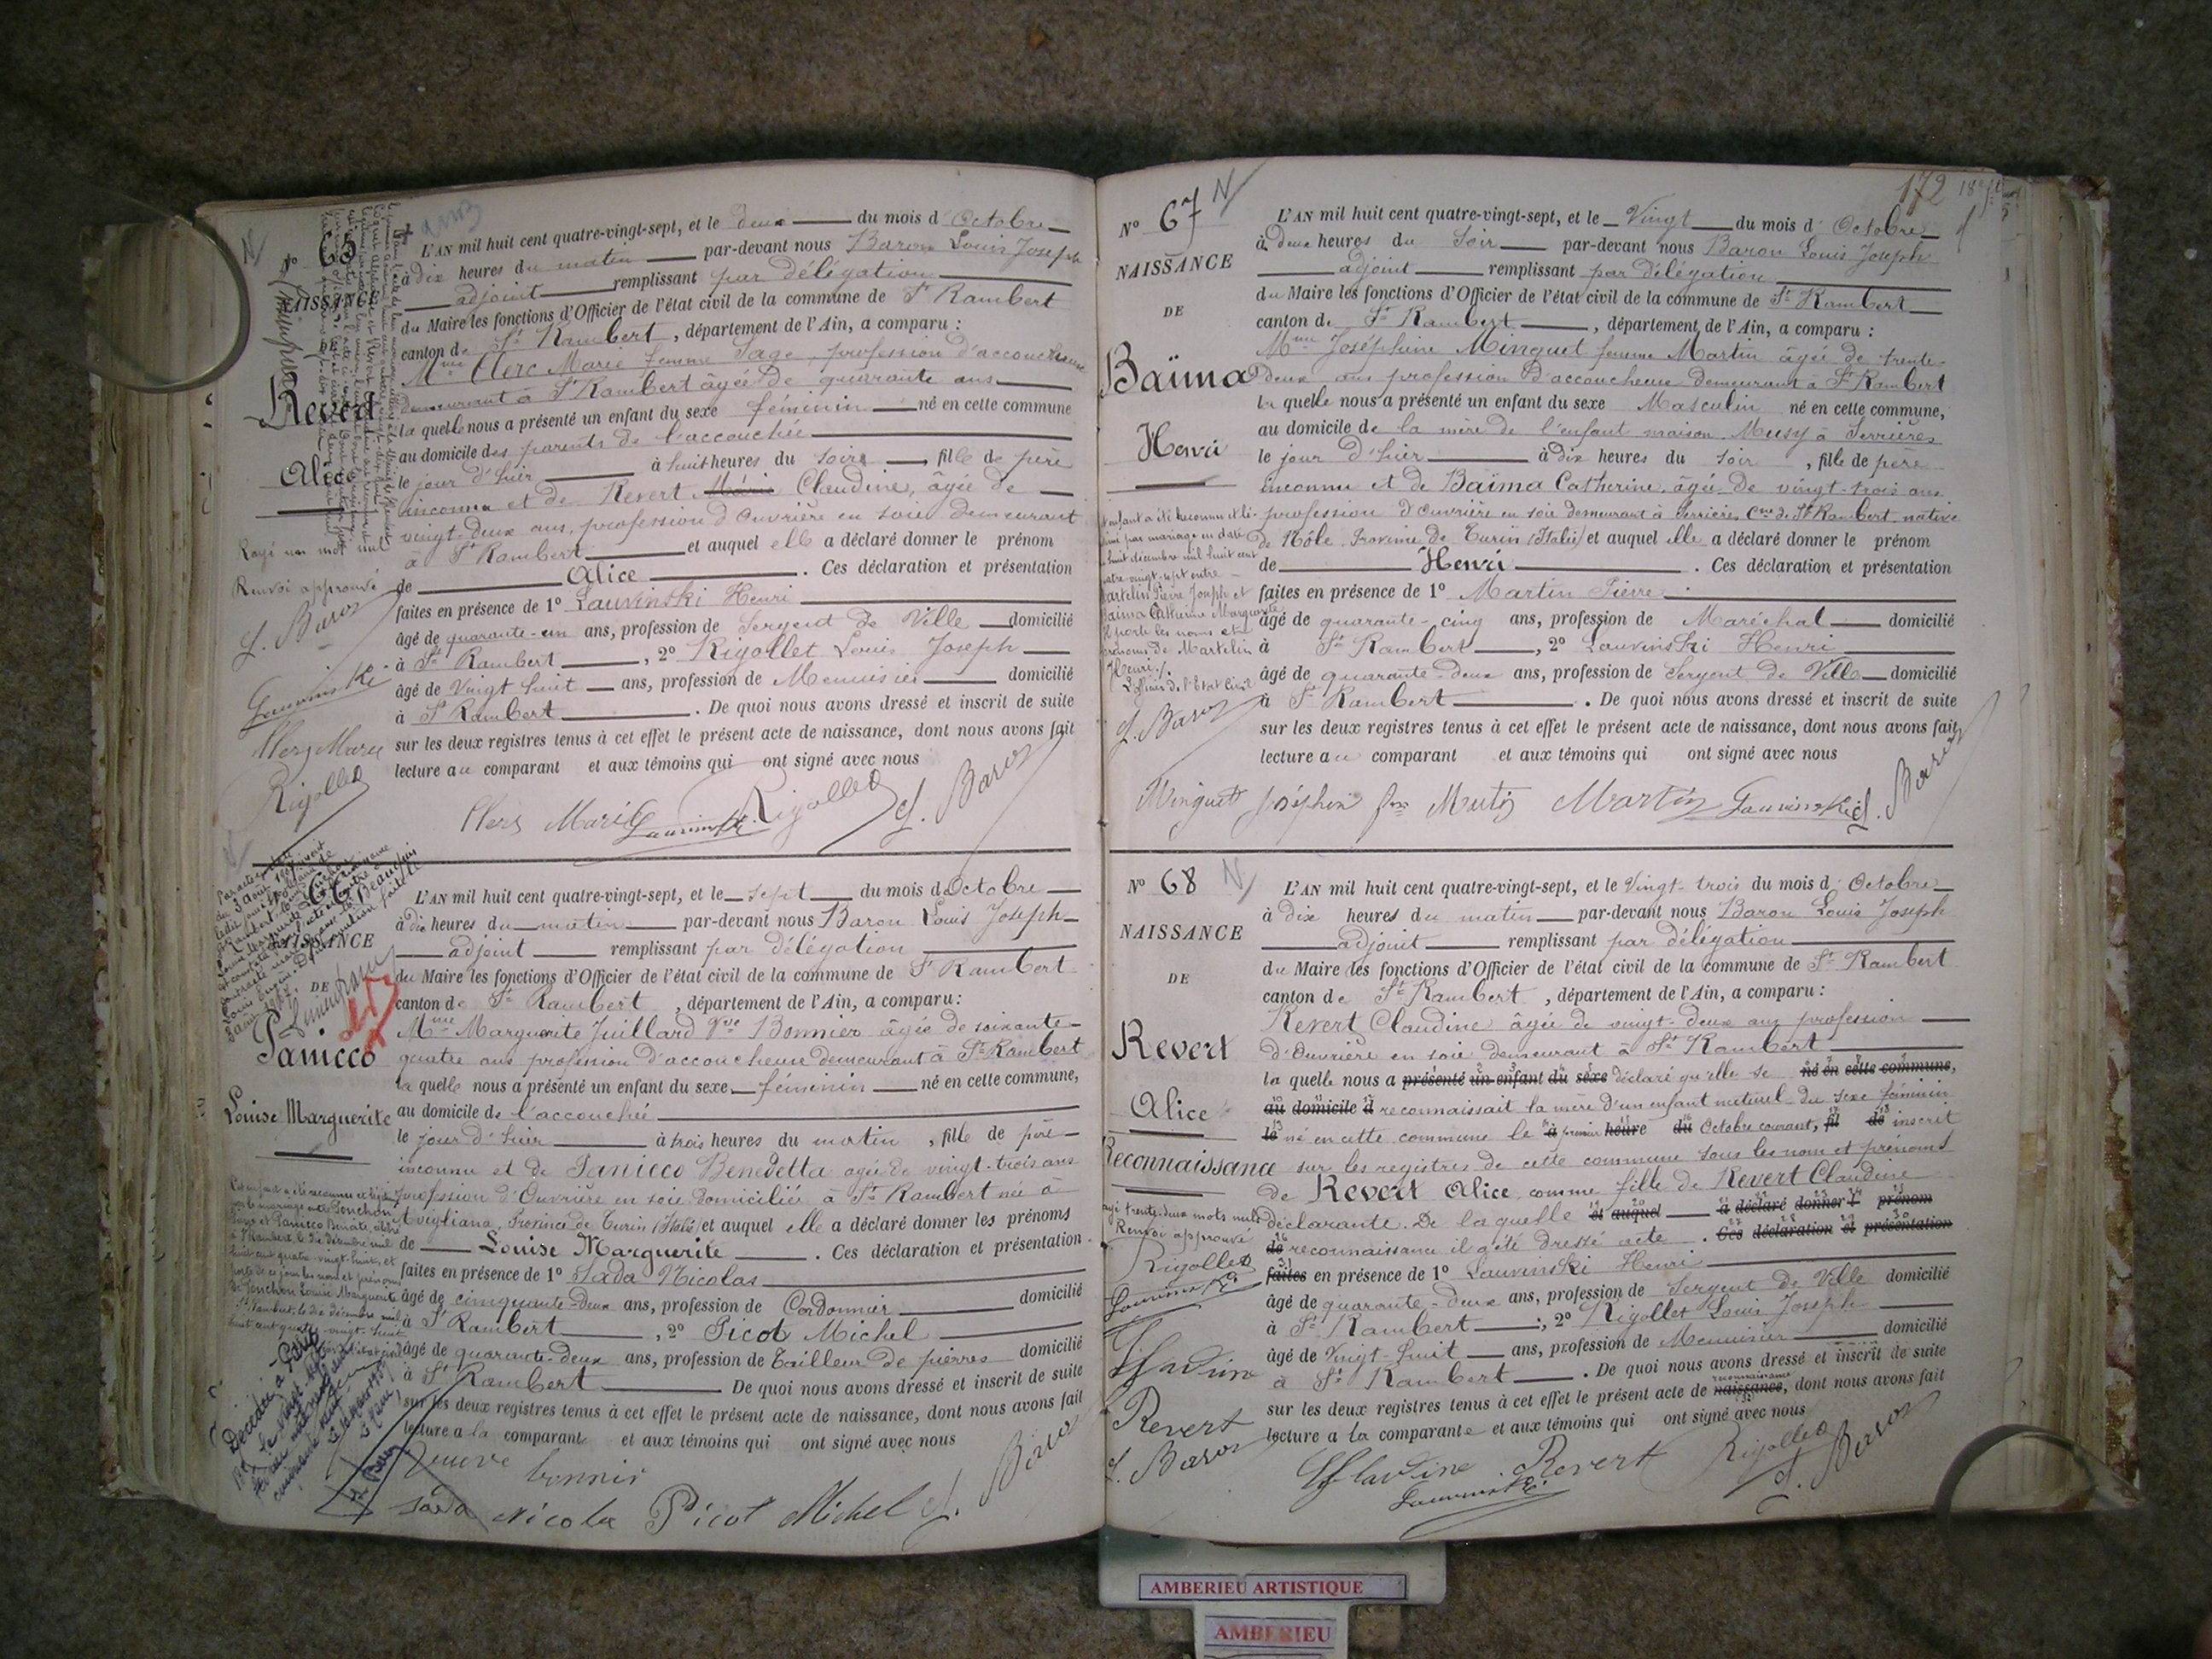 N° 65
NAISSANCE
Revert
Alice
Rayé un mot nul
Renvoi approuvé
L. Baron
Lauvinski
Clerc Marie
Rigollet
L'AN mil huit cent quatre-vingt-sept, et le deux du mois d'Octobre
à dix heures du matin par-devant nous Baron Louis Joseph
adjoint remplissant par délégation
du Maire les fonctions d'Officier de l'état civil de la commune de St Rambert
canton de St Rambert, département de l'Ain, a comparu :
Mme Clerc Marie femme Sage, profession d'accoucheuse
demeurant à St Rambert âgée de quarante ans
la quelle nous a présenté un enfant du sexe féminin né en cette commune
au domicile des parents de l'accouchée
le jour d'hier à huit heures du soir, fille de père
inconnu et de Revert Marie Claudine, âgée de
vingt-deux ans, profession d'ouvrière en soie demeurant
à St Rambert et auquel elle a déclaré donner le prénom
de Alice. Ces déclaration et présentation
faites en présence de 1° Lauvinski Henri
âgé de quarante-un ans, profession de Sergent de Ville domicilié
à St Rambert, 2° Rigollet Louis Joseph
âgé de vingt huit ans, profession de Menuisier domicilié
à St Rambert. De quoi nous avons dressé et inscrit de suite
sur les deux registres tenus à cet effet le présent acte de naissance, dont nous avons fait
lecture au comparant et aux témoins qui ont signé avec nous
Clerc Marie Lauvinski Rigollet L. Baron
66
NAISSANCE
DE
Panicco
Louise Marguerite
L'AN mil huit cent quatre-vingt-sept, et le sept du mois d'Octobre
à dix heures du matin par-devant nous Baron Louis Joseph
adjoint remplissant par délégation
du Maire les fonctions d'Officier de l'état civil de la commune de St Rambert
canton de St Rambert, département de l'Ain, a comparu :
Mme Marguerite Juillard Vve Bonnier âgée de soixante
quatre ans profession d'accoucheuse demeurant à St Rambert
la quelle nous a présenté un enfant du sexe féminin né en cette commune,
au domicile de l'accouchée
le jour d'hier à trois heures du matin, fille de père
inconnu et de Panicco Benedetta âgée de vingt-trois ans
profession d'Ouvrière en soie domiciliée à St Rambert née à
Avigliana, Province de Turin (Italie) et auquel elle a déclaré donner les prénoms
de Louise Marguerite. Ces déclaration et présentation
faites en présence de 1° Sada Nicolas
âgé de cinquante-deux ans, profession de Cordonnier domicilié
à St Rambert, 2° Picot Michel
âgé de quarante-deux ans, profession de Tailleur de pierres domicilié
à St Rambert De quoi nous avons dressé et inscrit de suite
sur les deux registres tenus à cet effet le présent acte de naissance, dont nous avons fait
lecture a la comparante et aux témoins qui ont signé avec nous
Sada Nicola Picot Michel L. Baron
172
N° 67
NAISSANCE
DE
Baïma
Henri
L'enfant a été reconnu et légi-
timé par mariage en date
huit décembre mil huit cent
quatre-vingt-sept entre
Martelin Pierre Joseph et
Baïma Catherine Marguerite
Il porte les noms et
prénoms de Martelin
Henri
L'officier de l'Etat Civil
L. Baron
L'AN mil huit cent quatre-vingt-sept, et le Vingt du mois d'Octobre
à deux heures du Soir par-devant nous Baron Louis Joseph
adjoint remplissant par délégation
du Maire les fonctions d'Officier de l'état civil de la commune de St Rambert
canton de St Rambert, département de l'Ain, a comparu :
Mme Joséphine Minguet femme Martin âgée de trente
deux ans profession d'accoucheuse demeurant à St Rambert
la quelle nous a présenté un enfant du sexe Masculin né en cette commune,
au domicile de la mère de l'enfant maison Musy à Serrières
le jour d'hier à dix heures du soir, fille de père
inconnu et de Baïma Catherine, âgée de vingt-trois ans
profession d'ouvrière en soie demeurant à Serrières Cne de St Rambert native
de Nôle Province de Turin (Italie) et auquel elle a déclaré donner le prénom
de Henri. Ces déclaration et présentation
faites en présence de 1° Martin Pierre
âgé de quarante-cinq ans, profession de Maréchal domicilié
à St Rambert, 2° Lauvinski Henri
âgé de quarante-deux ans, profession de Sergent de Ville domicilié
à St Rambert. De quoi nous avons dressé et inscrit de suite
sur les deux registres tenus à cet effet le présent acte de naissance, dont nous avons fait
lecture au comparant et aux témoins qui ont signé avec nous
Minguet Joséphin Martin Lauvinski L. Baron
N° 68
NAISSANCE
DE
Revert
Alice
Reconnaissance
Rayé trente-deux mots nuls
Renvoi approuvé
Rigollet
Lauvinski
Claudine
Revert
L. Baron
L'AN mil huit cent quatre-vingt-sept, et le Vingt-trois du mois d'Octobre
à dix heures du matin par-devant nous Baron Louis Joseph
adjoint remplissant par délégation
du Maire les fonctions d'Officier de l'état civil de la commune de St Rambert
canton de St Rambert, département de l'Ain, a comparu :
Revert Claudine âgée de vingt-deux ans profession
d'Ouvrière en soie demeurant à St Rambert
la quelle nous a présenté un enfant du sexe déclaré qu'elle se né en cette commune,
au domicile d reconnaissait la mère d'un enfant naturel du sexe féminin
le né en cette commune le à premier heure du Octobre courant, fil de inscrit
sur les registres de cette commune sous les nom et prénoms
de Revert Alice comme fille de Revert Claudine
déclarante. De laquelle et auquel a déclaré donner l prénom
de reconnaissance il a été dressé acte. Ces déclaration et présentation
faites en présence de 1° Lauvinski Henri
âgé de quarante-deux ans, profession de Sergent de Ville domicilié
à St Rambert, 2° Rigollet Louis Joseph
âgé de Vingt-huit ans, profession de Menuisier domicilié
à St Rambert. De quoi nous avons dressé et inscrit de suite
sur les deux registres tenus à cet effet le présent acte de naissance reconnaissance, dont nous avons fait
lecture a la comparante et aux témoins qui ont signé avec nous
Claudine Revert Rigollet
Lauvinski L. Baron
AMBERIEU ARTISTIQUE
AMBERIEU